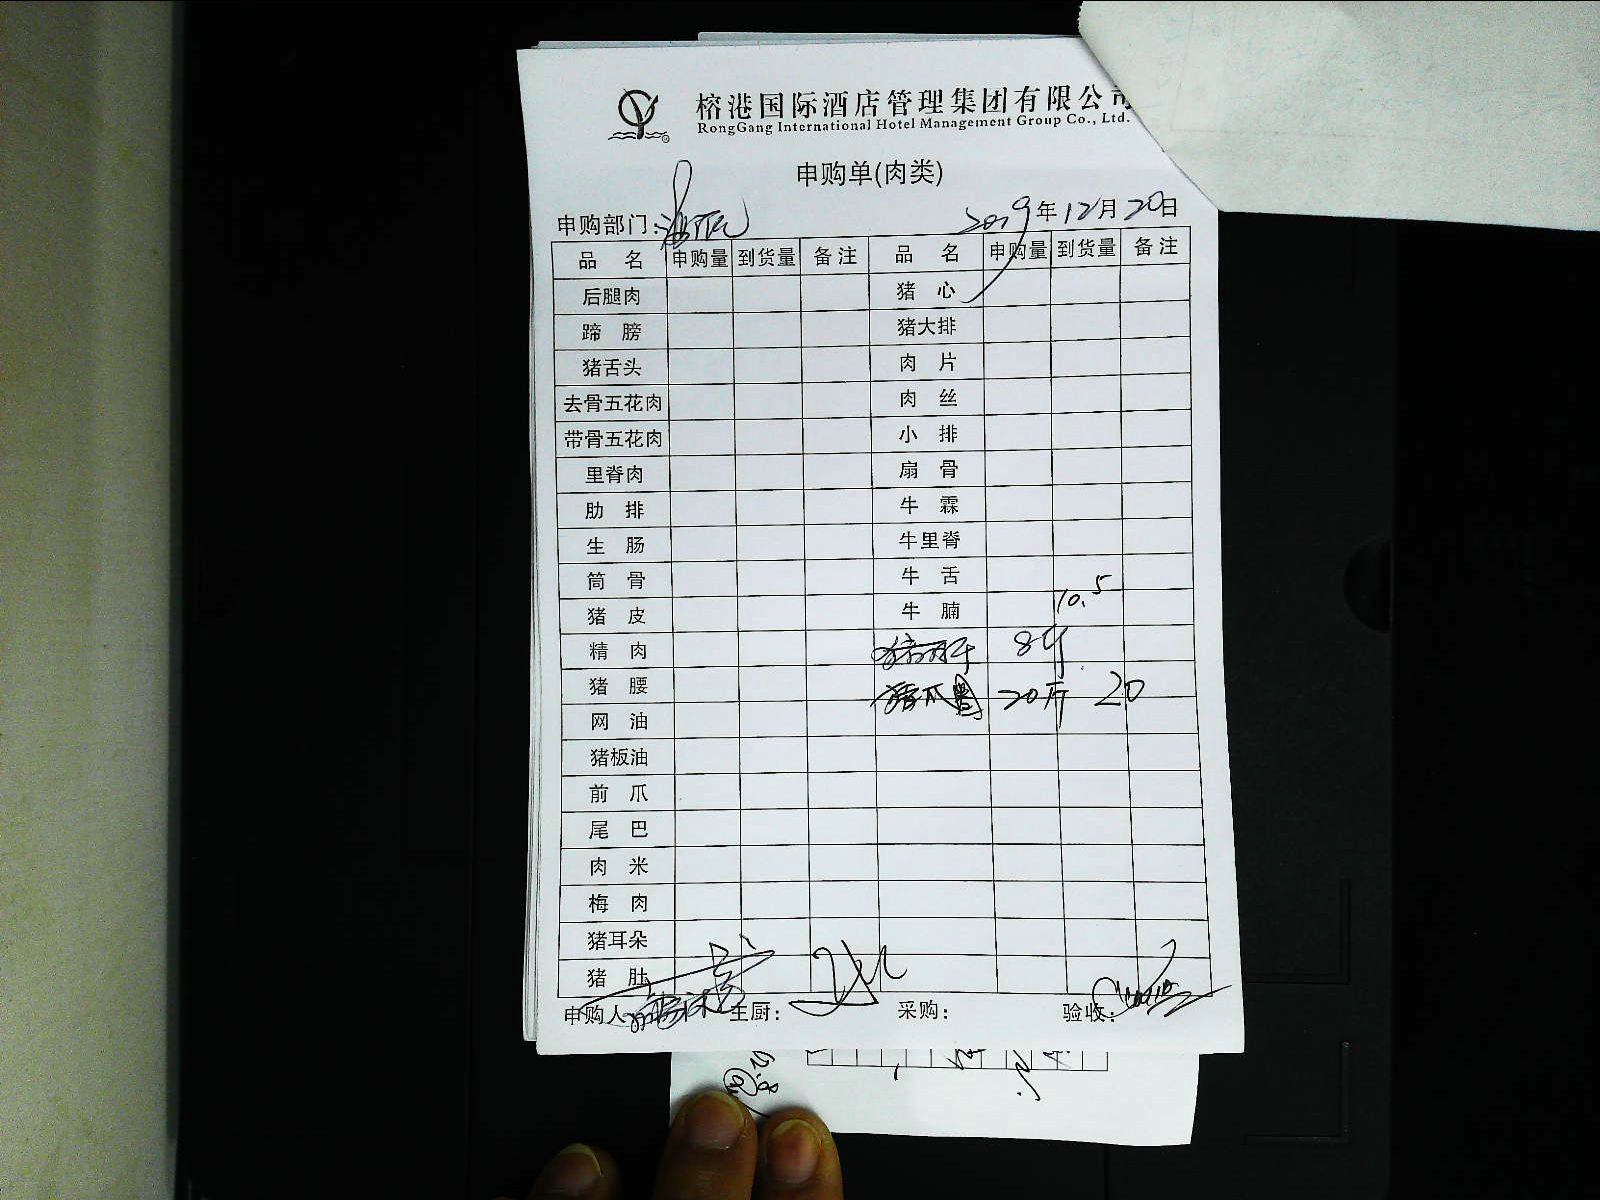 榕港国际酒店管理集团有限公司
RongGang International Hotel Management Group Co., Ltd.
申购单(肉类)
申购部门: 2019年12月20日
品 名 申购量 到货量 备注 品 名 申购量 到货量 备注
后腿肉 猪 心
蹄 膀 猪大排
猪舌头 肉 片
去骨五花肉 肉 丝
带骨五花肉 小 排
里脊肉 扇 骨
肋 排 牛 霖
生 肠 牛里脊
筒 骨 牛 舌
猪 皮 牛 腩 10.5
精 肉 猪肝 8斤
猪 腰 猪爪 20斤 20
网 油
猪板油
前 爪
尾 巴
肉 米
梅 肉
猪耳朵
猪 肚
申购人 主厨: 采购: 验收: